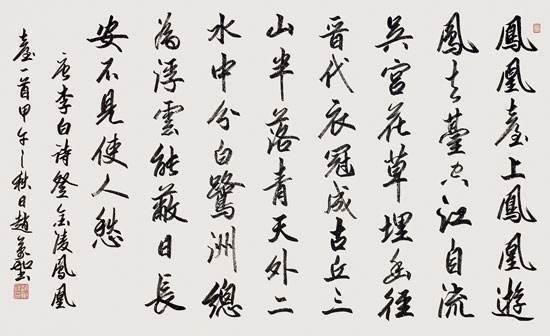 鳳凰臺上鳳凰遊
鳳去臺空江自流
吳宮花草埋幽徑
晉代衣冠成古丘三
山半落青天外二
水中分白鷺洲總
為浮雲能蔽日長
安不見使人愁
唐李白詩登金陵鳳凰
臺一首甲午之秋日趙